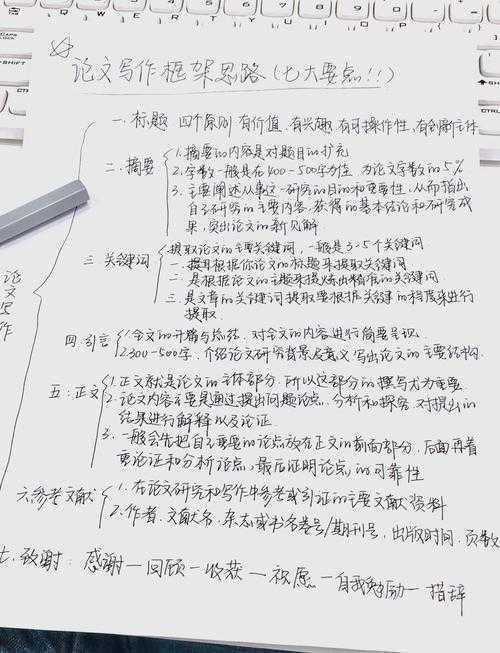 论文写作框架思路(七大要点!!)
论文写作
一. 标题 四个原则 有价值 有兴趣 有可操作性, 有创新主体
二. 摘要
1. 摘要的内容是对题目的扩充
2. 字数一般是在400-500字左右 为论文字数的5%
3. 主要阐述从事这一研究的目的和重要性, 从而指出
自己研究的主要内容. 获得的基本结论和研究成
果, 突出论文的新见解.
三 关键词
提取论文的主要关键词, 一般是3-5个关键词
一. 提取根据你论文的标题来提取关键词
二 是根据论文的主题来提炼出精准的关键词
三. 是文章的关键词提取要根据关键的程度来进行
提取
四. 引言
1. 全文的开篇与总结. 对全文的内容进行简要呈现.
2. 300-500字. 介绍论文研究背景及意义 写出论文的主要结构.
五: 正文
1. 正文就是论文的主体部分. 所以这部分的撰写尤为重要
2. 论文内容主要是通过提出问题论点. 分析和探容. 对提出的
结果进行解释以及论证.
3. 一般会先把自己重要的论点放在正文的前面部分, 后面再着
重论证和分析论点, 最后证明论点的可靠性
六.参考文献
1. 在论文研究和写作中参考或引证的主要文献资料
2. 作者. 文献名. 杂志或书名卷号/期刊号, 出版时间. 页数
七. 致谢: 感谢一回顾一收获一祝愿一自我勉励一措辞
SHIFT